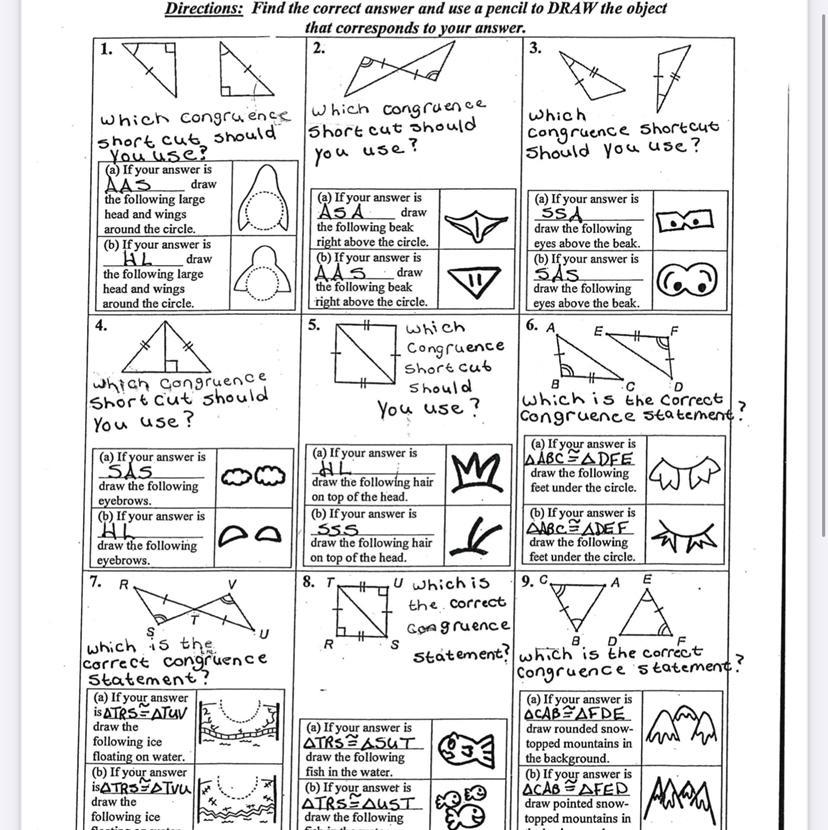 Directions: Find the correct answer and use a pencil to DRAW the object
that corresponds to your answer.
1.
which congruence
short cut should
You use?
(a) If your answer is
AAS draw
the following large
head and wings
around the circle.
(b) If your answer is
HL draw
the following large
head and wings
around the circle.
2.
which congruence
short cut should
you use?
(a) If your answer is
ASA draw
the following beak
right above the circle.
(b) If your answer is
AAS draw
the following beak
right above the circle.
3.
which
congruence shortcut
should you use?
(a) If your answer is
SSA
draw the following
eyes above the beak.
(b) If your answer is
SAS
draw the following
eyes above the beak.
4.
which congruence
short cut should
You use?
(a) If your answer is
SAS
draw the following
eyebrows.
(b) If your answer is
HL
draw the following
eyebrows.
5.
which
Congruence
short cut
should
You use?
(a) If your answer is
HL
draw the following hair
on top of the head.
(b) If your answer is
SSS
draw the following hair
on top of the head.
6. A E F
B C D
which is the correct
congruence statement?
(a) If your answer is
△ABC≅△DFE
draw the following
feet under the circle.
(b) If your answer is
△ABC≅△DEF
draw the following
feet under the circle.
7. R V
S T U
which is the
correct congruence
statement?
(a) If your answer
is△TRS≅△TUV
draw the
following ice
floating on water.
(b) If your answer
is△TRS≅△TVU
draw the
following ice
8. T U
R S
which is
the correct
congruence
statement?
(a) If your answer is
△TRS≅△SUT
draw the following
fish in the water.
(b) If your answer is
△TRS≅△UST
draw the following
9. C A E
B D F
which is the correct
congruence statement?
(a) If your answer is
△CAB≅△FDE
draw rounded snow-
topped mountains in
the background.
(b) If your answer is
△CAB≅△FED
draw pointed snow-
topped mountains in